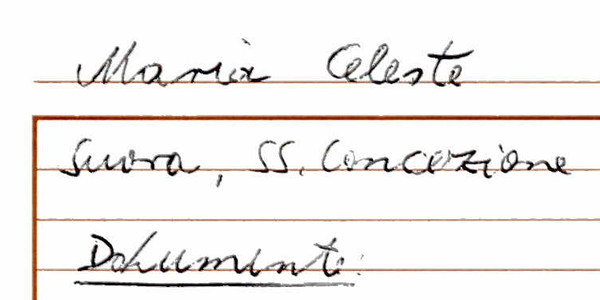 Maria Celeste
Suora, SS. Concezione
Dokumente: